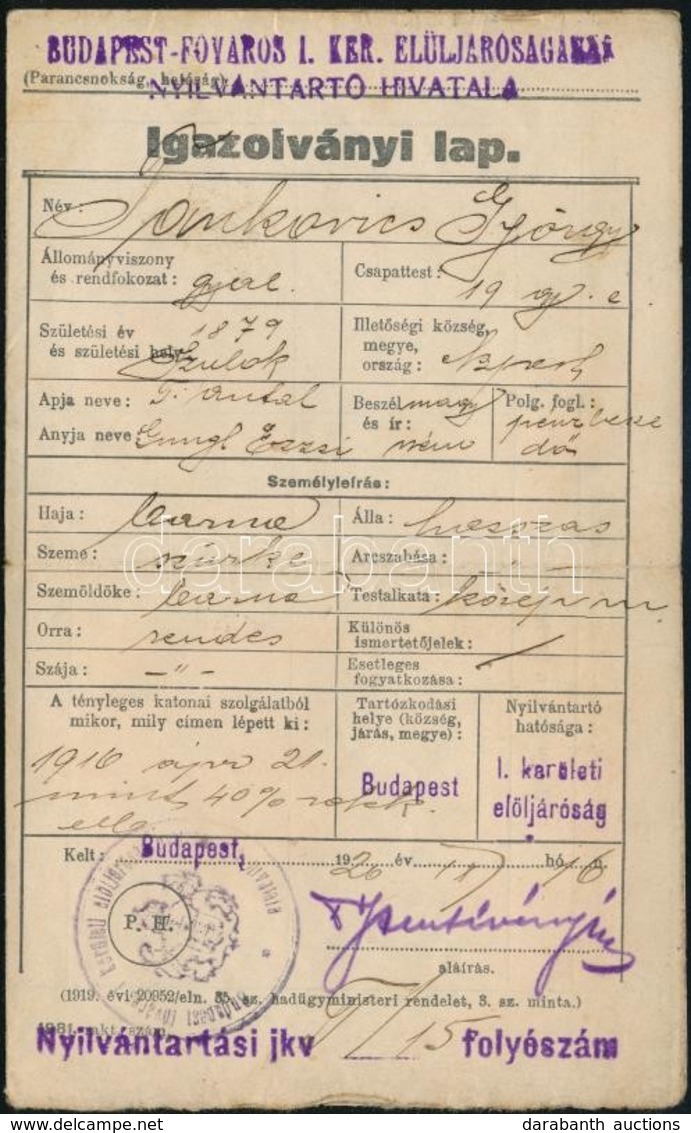 BUDAPEST-FŐVÁROS I. KER. ELÜLJÁRÓSÁGÁNAK
(Parancsnokság, hatóság)
NYILVÁNTARTÓ HIVATALA
Igazolványi lap.
Név: Jankovics György
Állományviszony és rendfokozat: gyal.
Csapattest: 19 gy. e.
Születési év és születési hely: 1879 Szulok
Illetőségi község, megye, ország:
Apja neve: Antal
Anyja neve: Gungl Erzsi
Beszél és ír: magy ném
Polg. fogl.: pénzbesze
dő
Személyleírás:
Haja: barna
Álla: hosszas
Szeme: szürke
Arcszabása: - " -
Szemöldöke: barna
Testalkata: közép m.
Orra: rendes
Különös ismertetőjelek:
Szája: - " -
Esetleges fogyatkozása:
A tényleges katonai szolgálatból
mikor, mily címen lépett ki:
Tartózkodási
helye (község,
járás, megye):
Nyilvántartó
hatósága:
1916 ápr 21.
mint 40% rokk.
Budapest
I. kerületi
elöljáróság
Kelt: Budapest, 1920 év 11 hó 16 n.
P. H.
aláírás.
(1919. évi 20952/eln. 35. sz. hadügyministeri rendelet, 3. sz. minta.)
Nyilvántartási jkv 15 folyószám
darabanth
darabanth auctions